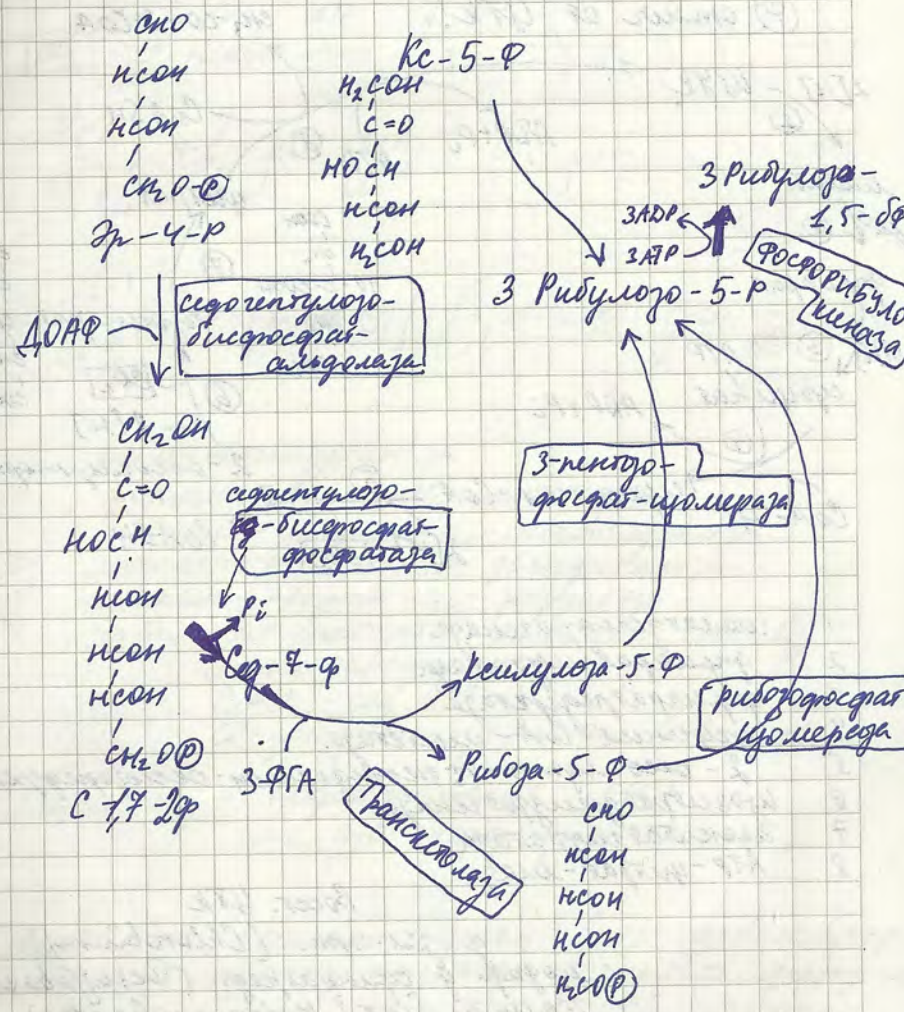 CHO
HCOH
HCOH
CH₂O-Ⓟ
Эр-4-Р
ДОАФ
седогептулозо-
бисфосфат-
альдолаза
CH₂OH
C=O
HOCH
HCOH
HCOH
HCOH
CH₂OⓅ
С-1,7-2ф
седогептулозо-
-бисфосфат-
фосфатаза
Pi
Сед-7-ф
3-ФГА
Транскетолаза
Кс-5-Ф
H₂COH
C=O
HOCH
HCOH
H₂COH
3 Рибулоза-
1,5-бФ
3ADP
3ATP
Фосфорибуло
киназа
3 Рибулозо-5-Р
3-пентозо-
фосфат-изомераза
Ксилулоза-5-Ф
рибозофосфат
изомераза
Рибоза-5-Ф
CHO
HCOH
HCOH
HCOH
H₂COⓅ